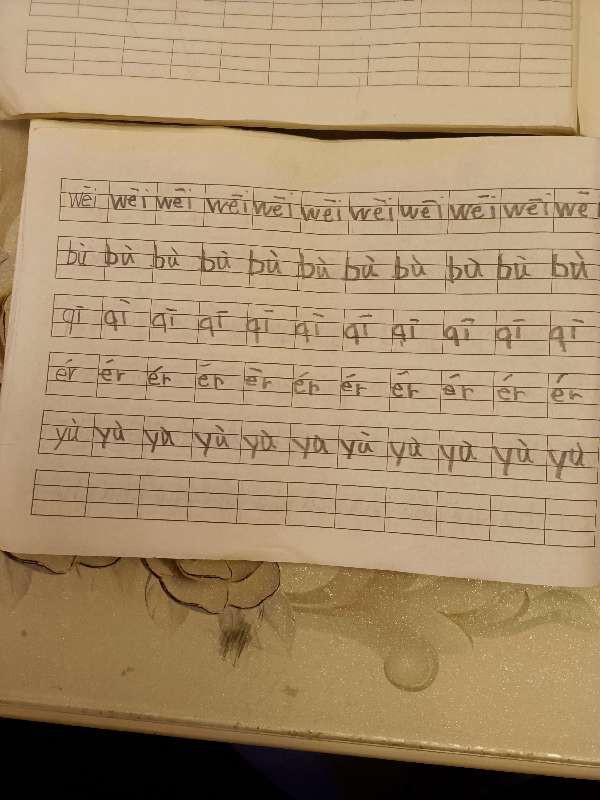 wēi wēi wēi wēi wēi wēi wēi wēi wēi wēi wē
bù bù bù bù bù bù bù bù bù bù bù
qī qī qī qī qī qī qī qī qī qī qī
ér ér ér ér ér ér ér ér ér ér ér
yù yù yù yù yù yù yù yù yù yù yù